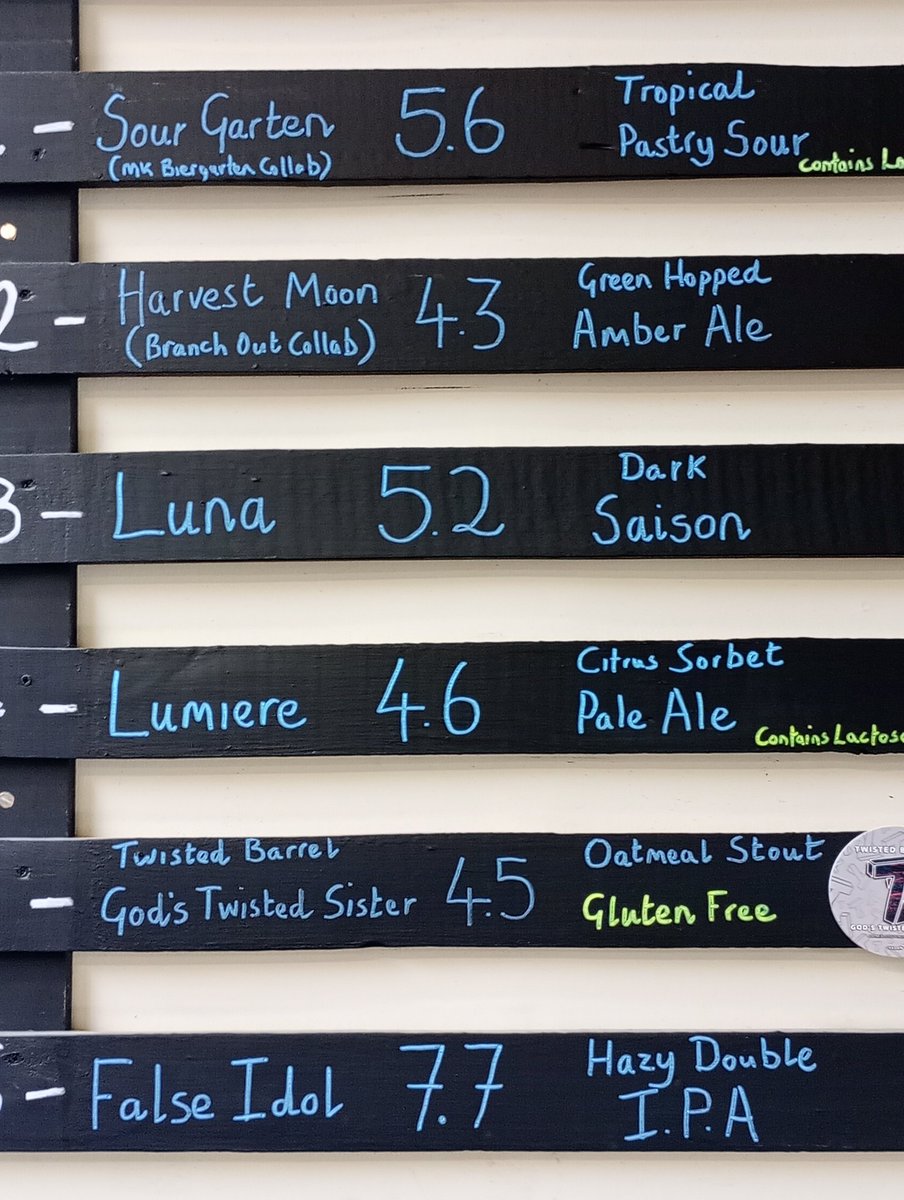 Sour Garten 5.6 Tropical
Pastry Sour
(MK Biergarten Collab)
contains
2 - Harvest Moon 4.3 Green Hopped
(Branch Out Collab) Amber Ale
3 - Luna 5.2 Dark
Saison
- Lumiere 4.6 Citrus Sorbet
Pale Ale
Contains Lactose
Twisted Barrel
- God's Twisted Sister 4.5 Oatmeal Stout
Gluten Free
TWISTED
GOD'S TWISTED
- False Idol 7.7 Hazy Double
I.P.A